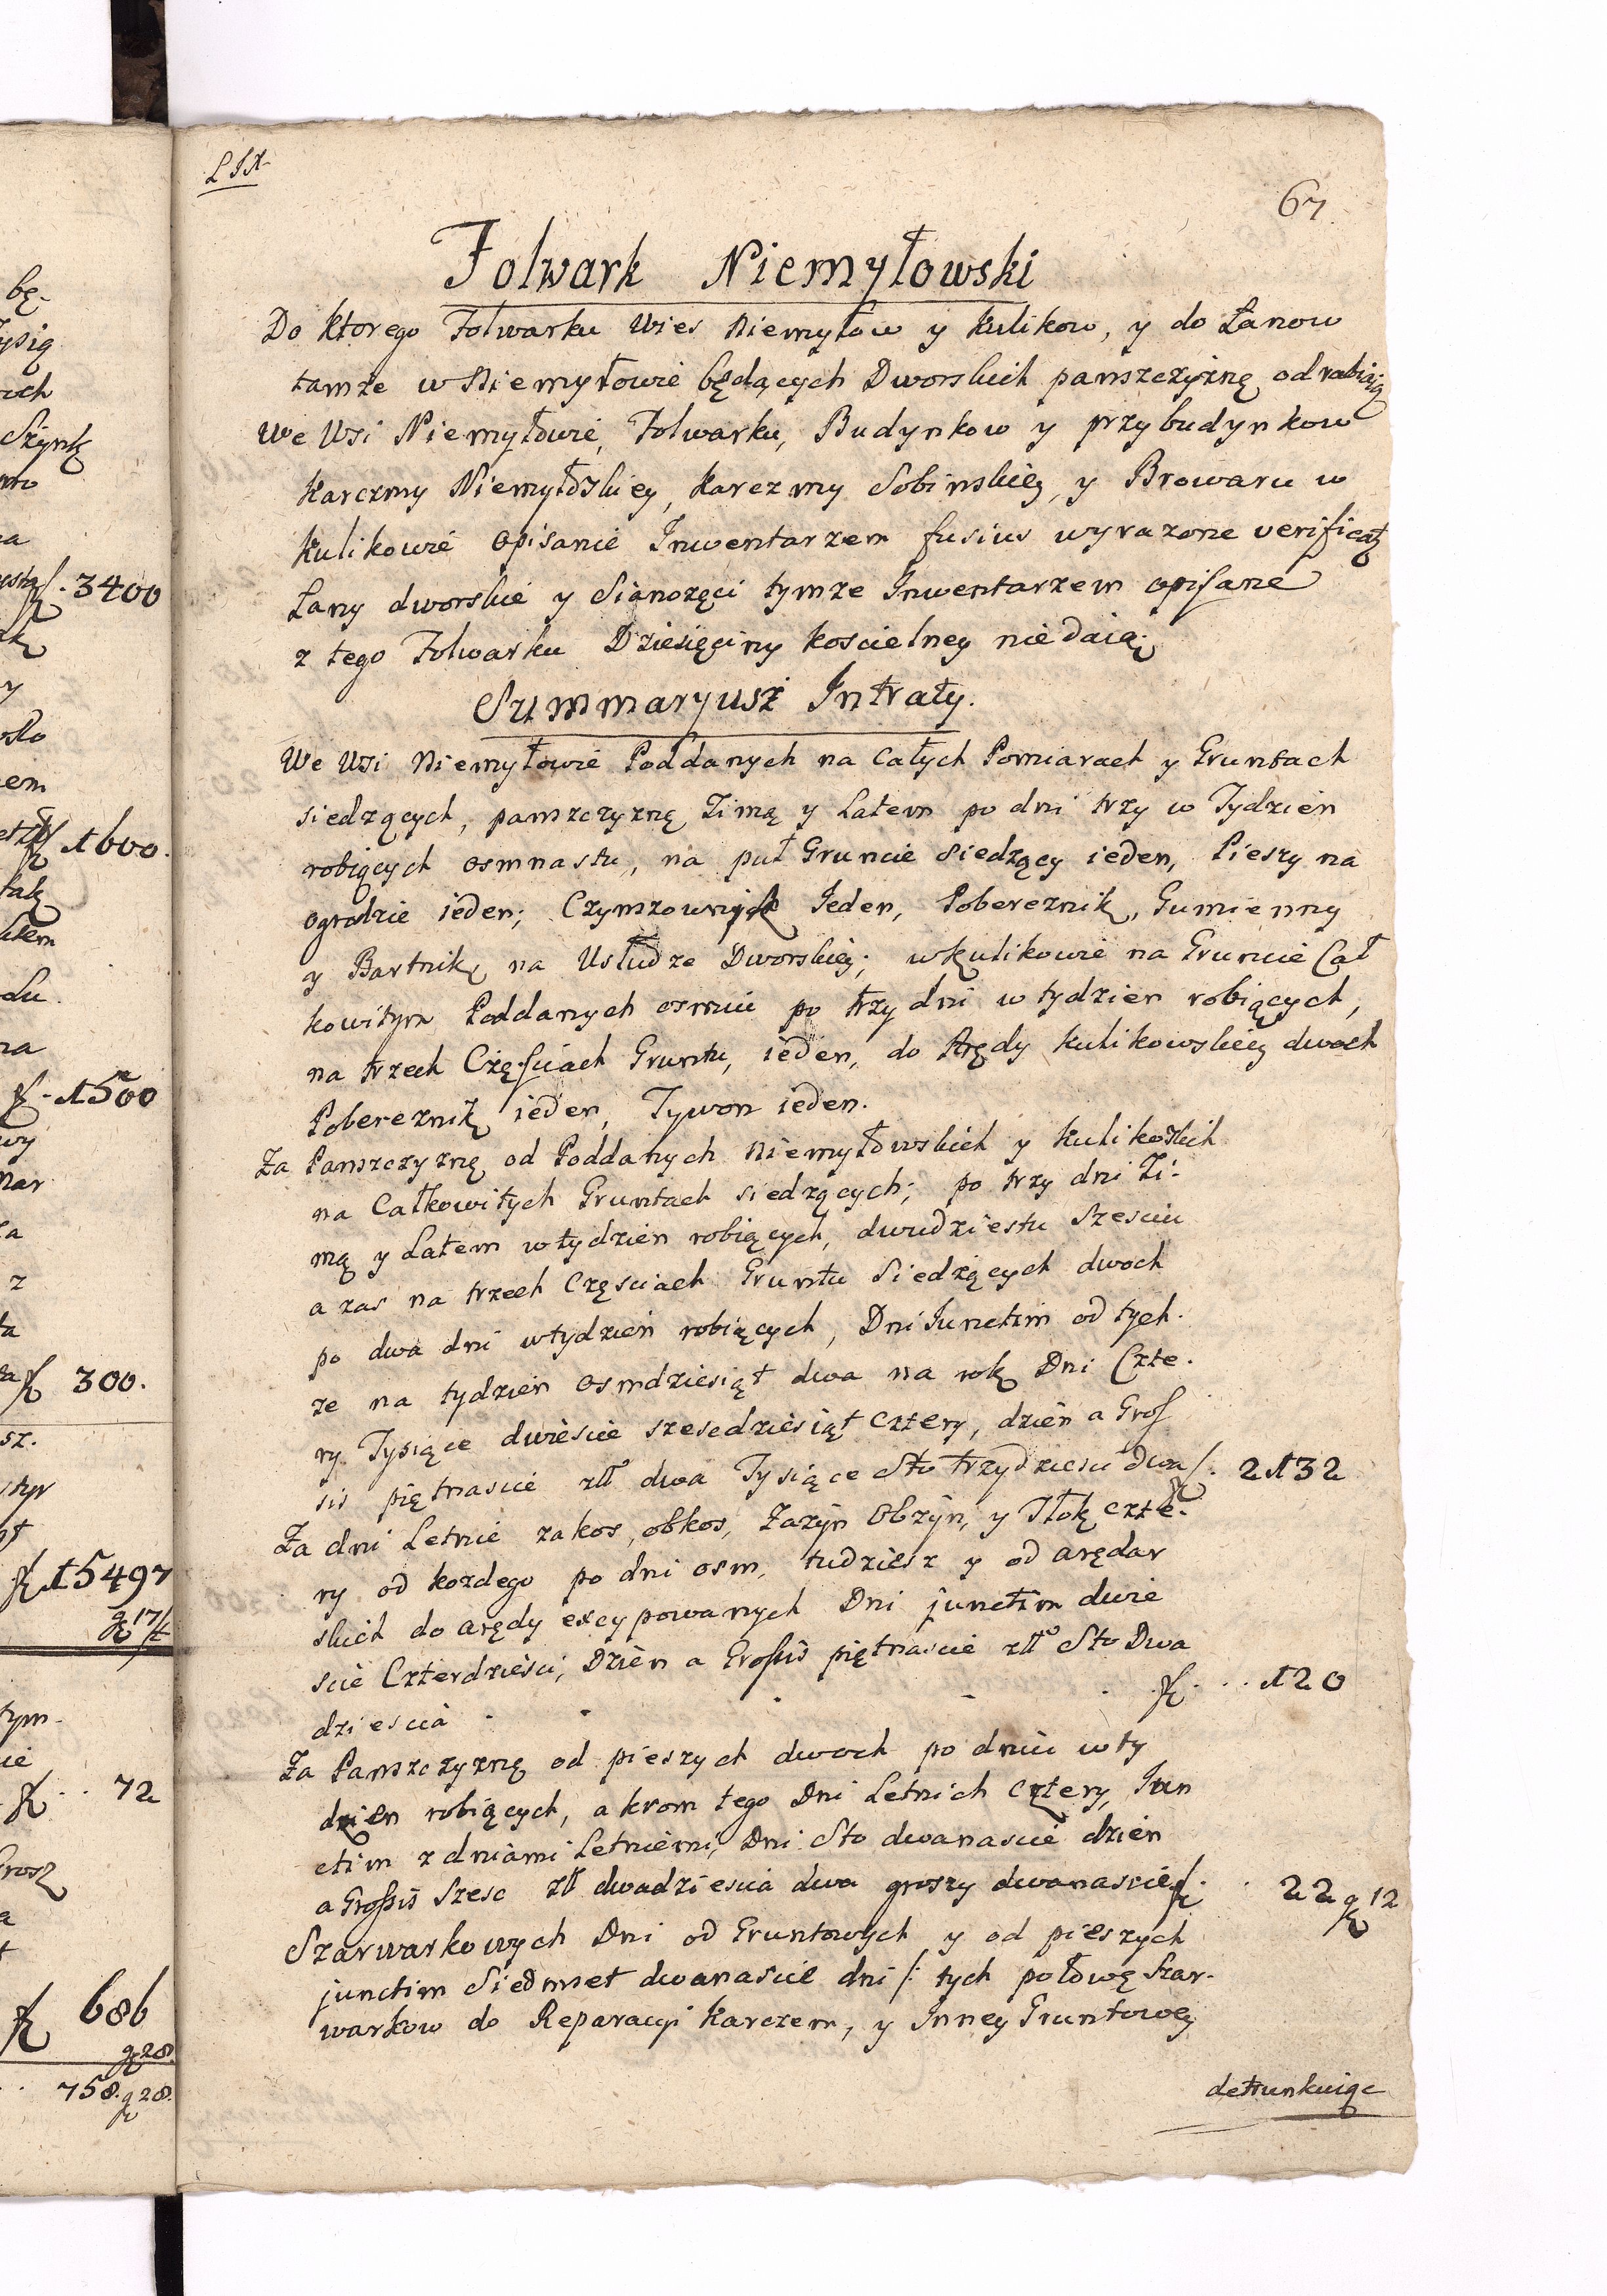 LIX
67
Folwark Niemyłowski
Do ktorego Folwarku Wies Niemyłow y Kulikow, y do Łanow
tamże w Niemyłowie będących Dworskich panszczyznę odrabiaią
We Wsi Niemyłowie, Folwarku, Budynkow y przybudynkow
Karczmy Niemyłoskiey, Karczmy Sobinskiey, y Browaru w
Kulikowie opisanie Inwentarzem fusius wyrazone
Łany dworskie y Sianozęci tymze Inwentarzem opisane
z tego Folwarku Dziesięciny koscielney niedaią.
Summaryusz Intraty.
We Wsi Niemyłowie Poddanych na Całych Pomiarach y Gruntach
siedzących, panszczyznę Zimą y Latem po dni trzy w Tydzień
robiących osmnastu, na puł Gruncie siedzący ieden, Pieszy na
ogrodzie ieden; Czynszownik Ieden, Pobereznik, Gumienny
y Bartnik, na Usłudze Dworskiey; w Kulikowie na Gruncie Cał
kowitym Poddanych osmiu po trzy dni w tydzien robiących,
na trzech Częsciach Gruntu, ieden, do Arędy Kulikowskiey dwoch
Pobereznik ieden, Tywon ieden.
Za Panszczyznę od Poddanych Niemyłowskich y Kulikoskich
na Całkowitych Gruntach siedzących; po trzy dni Zi-
mą y Latem w tydzien robiących, dwudziestu Szesciu
a zas na trzech Częsciach Gruntu Siedzących dwoch
po dwa dni w tydzien robiących, Dni Iunctim od tych-
ze na tydzien Osmdziesiąt dwa na rok Dni Czte-
ry Tysiące dwiescie szescdziesiąt cztery, dzien a Gros
sis piętnascie złł dwa Tysiące Sto trzydziesci dwa f. 2132
Za dni Letnie zakos, obkos, Zażyn Obzyn, y Tłok czte-
ry od kozdego po dni osm, tudziesz y od arędar
skich do arędy excypowanych Dni junctim dwie
scie Czterdziesci, Dzien a Grossis piętnascie złł Sto Dwa
dziescia - - - - f. . . 120
Za Panszczyznę od pieszych dwoch po dniu w ty
dzien robiących, a krom tego Dni Letnich cztery, Iun
ctim z dniami Letniemi, Dni Sto dwanascie dzien
a Grossis Szesc złł dwadziescia dwa groszy dwanascie f. . 22 g 12
Szarwarkowych Dni od Gruntowych y od pieszych
junctim Siedmset dwanascie dni /: tych połowę Szar-
warkow do Reparacyi Karczem, y Inney Gruntowey
detrunkuiąc
3400
1600.
1500
300.
15497
72
686
g 28.
758. g 28.